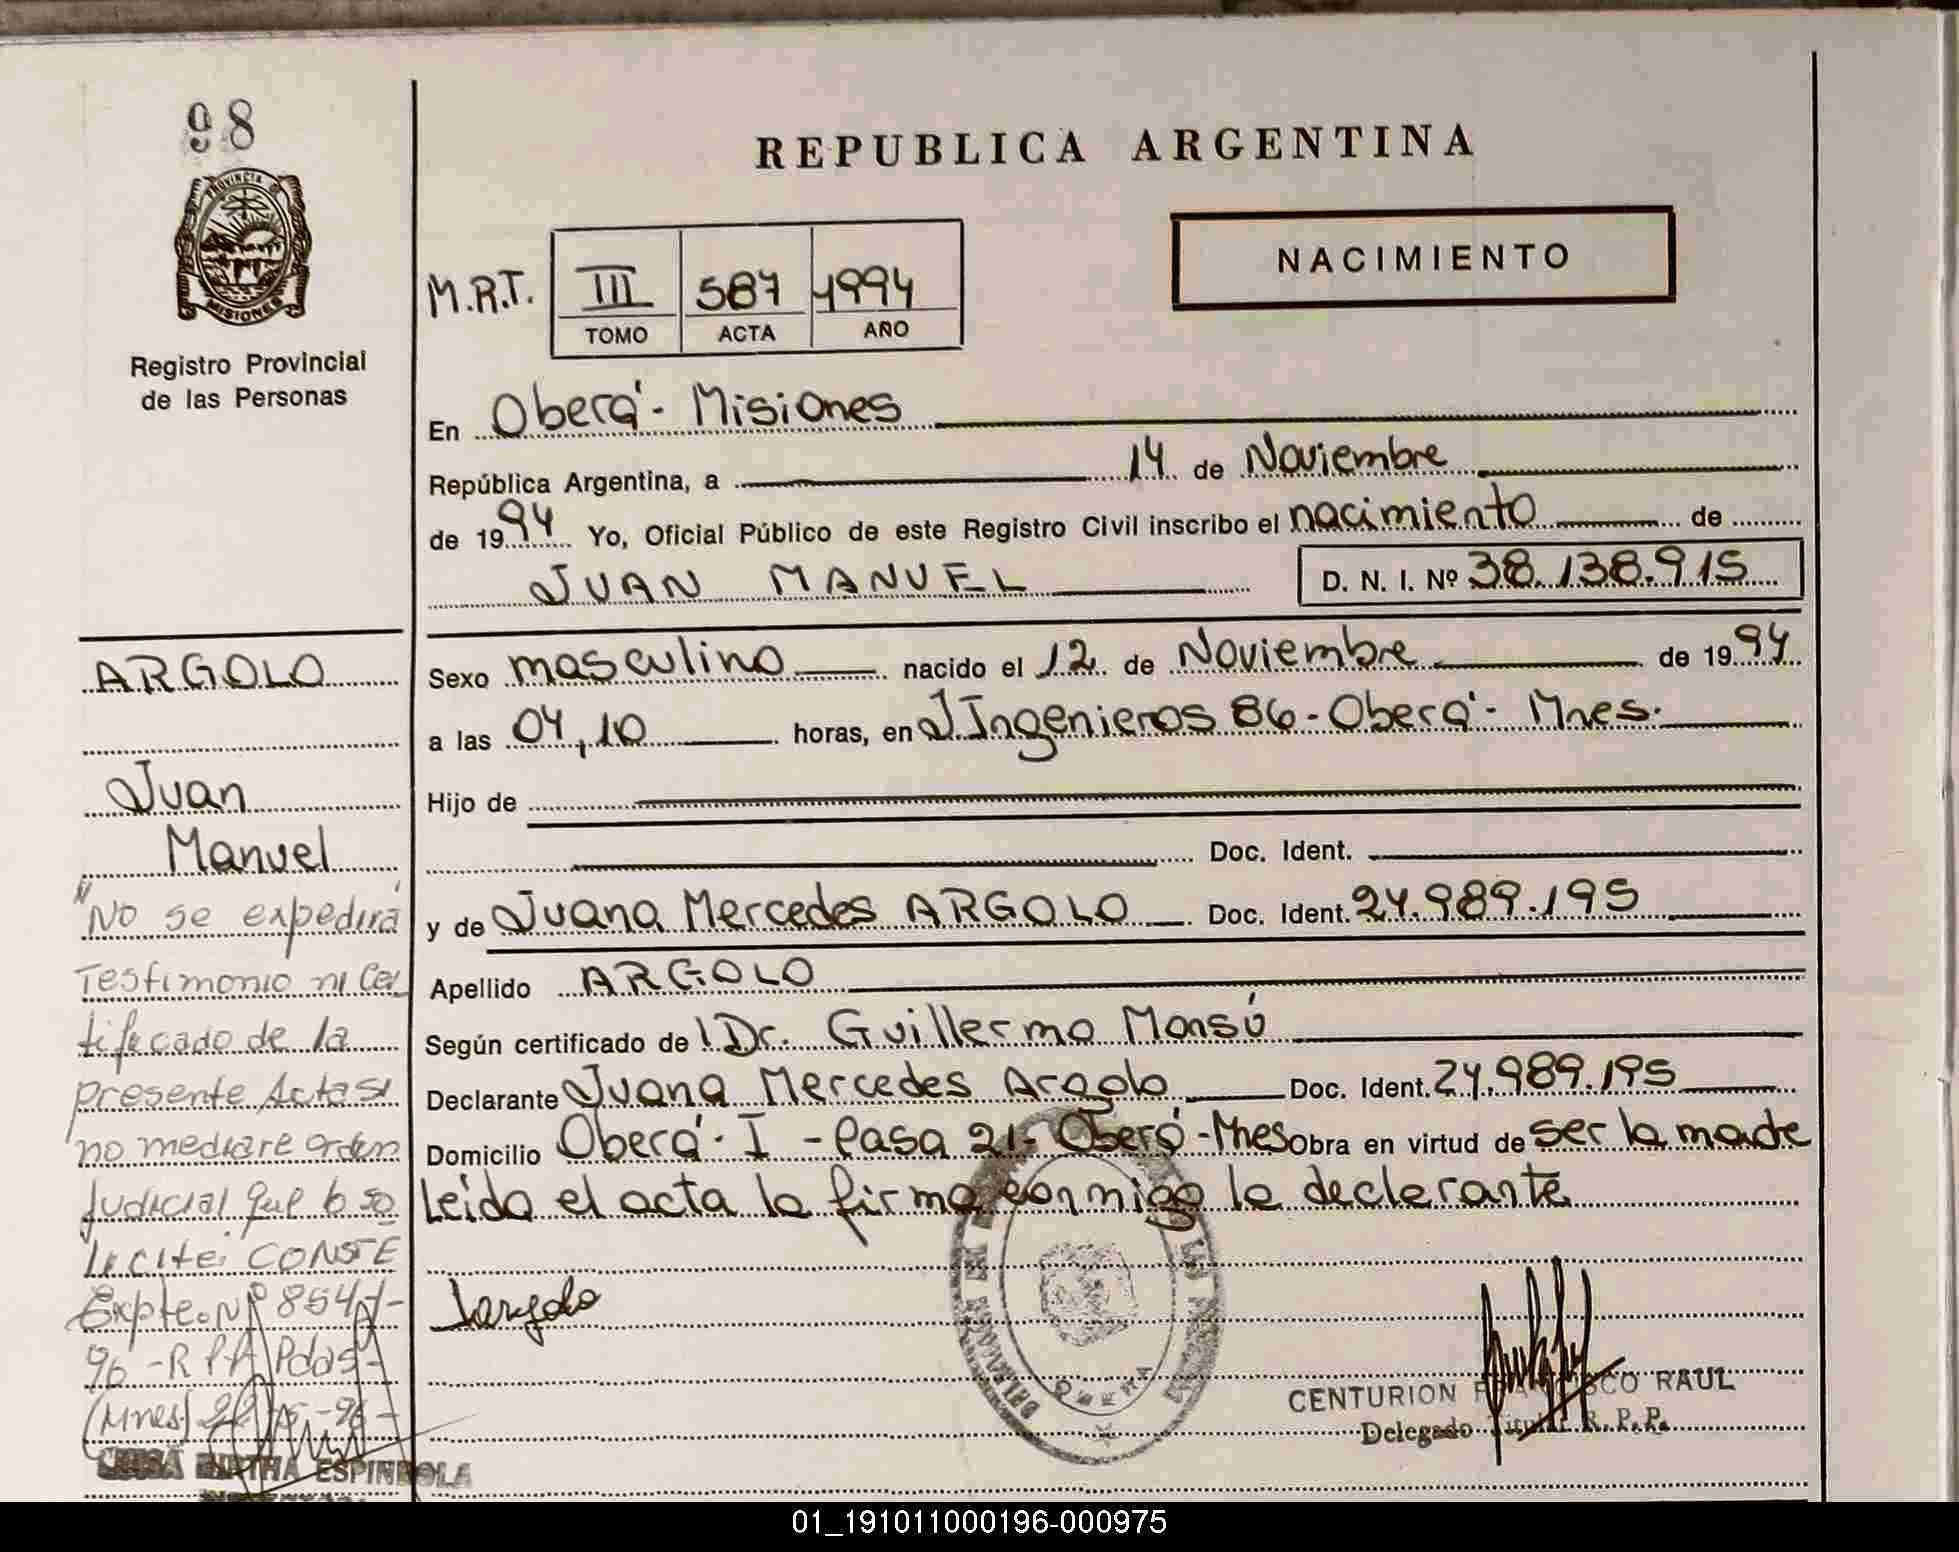 98
PROVINCIA DE
MISIONES
Registro Provincial
de las Personas
REPUBLICA ARGENTINA
NACIMIENTO
M.R.T. III 587 1994
TOMO ACTA AÑO
En Oberá - Misiones
República Argentina, a 14 de Noviembre
de 1994 Yo, Oficial Público de este Registro Civil inscribo el nacimiento de
JUAN MANUEL D. N. I. Nº 38.138.915
ARGOLO
Juan
Manuel
Sexo masculino nacido el 12 de Noviembre de 1994
a las 04,10 horas, en J Ingenieros 86 - Oberá - Mnes.
Hijo de
Doc. Ident.
y de Juana Mercedes ARGOLO Doc. Ident. 24.989.195
Apellido ARGOLO
Según certificado de Dr. Guillermo Monsú
Declarante Juana Mercedes Argolo Doc. Ident. 24.989.195
Domicilio Oberá - I - Casa 21 - Oberá - Mnes Obra en virtud de ser la madre
Leída el acta la firma conmigo la declarante
"No se expedirá
Testimonio ni Cer
tificado de la
presente Acta si
no mediare orden
Judicial que lo so
licite; CONSTE
Expte. Nº 854
96 - R P P Pdas -
(Mnes)
ESPINDOLA
OBERA
CENTURION FRANCISCO RAUL
Delegado Titular R. P. P.
01_191011000196-000975